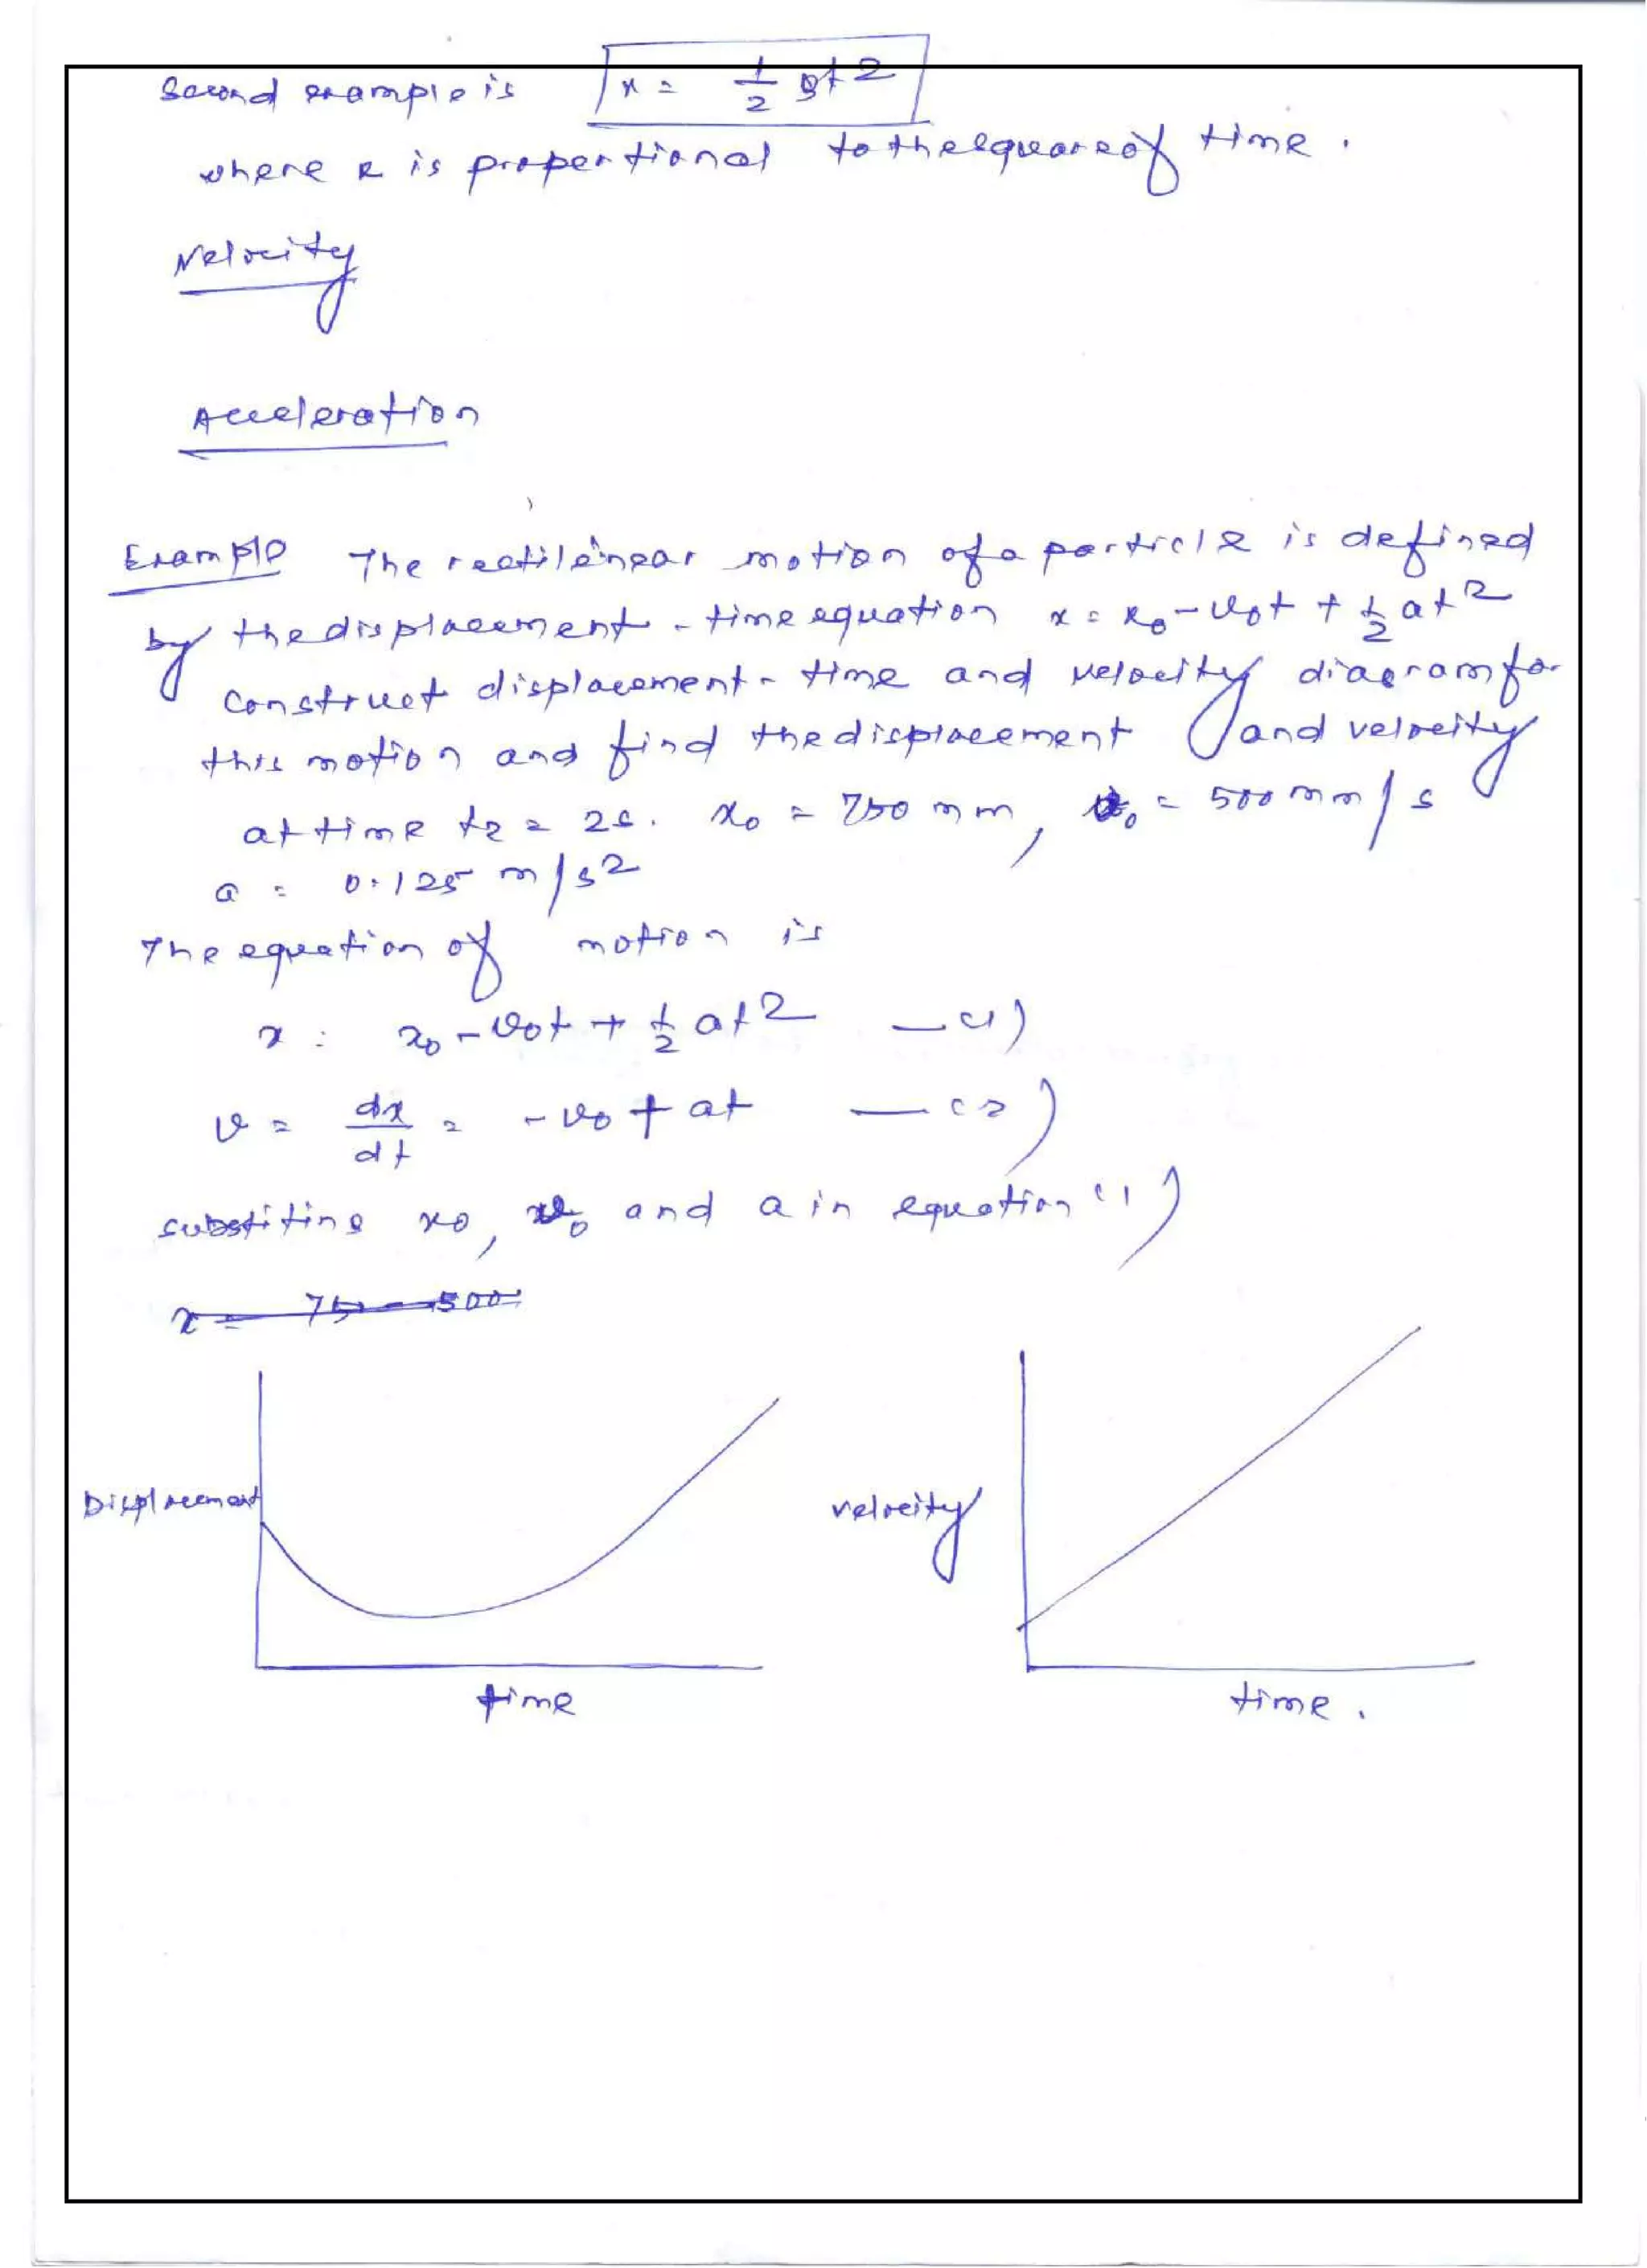 Second example is x = 1/2 gt2
where x is propertional to the square of time.
Velocity
Acceleration
Example The rectilinear motion of a particle is defined
by the displacement - time equation x = x0 - v0t + 1/2 at2
construct displacement - time and velocity diagram for
this motion and find the displacement and velocity
at time t2 = 2s. x0 = 750 mm, v0 = 500 mm/s
a = 0.125 m/s2
The equation of motion is
x = x0 - v0t + 1/2 at2 — (1)
v = dx/dt = -v0 + at — (2)
substiting x0, v0 and a in equation (1)
x = 75 - 500
Displacement
velocity
time
time.